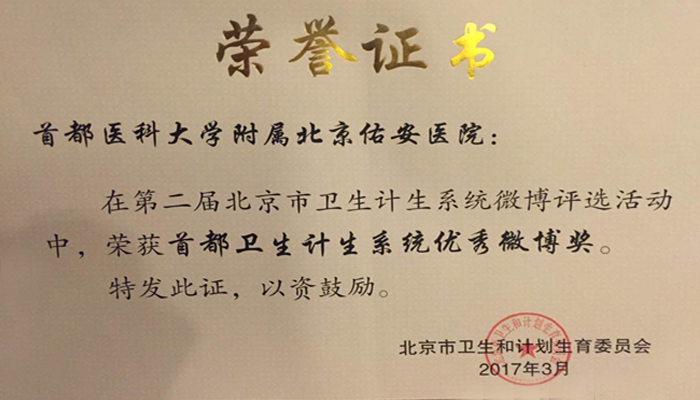 荣誉证书
首都医科大学附属北京佑安医院：
在第二届北京市卫生计生系统微博评选活动
中，荣获首都卫生计生系统优秀微博奖。
特发此证，以资鼓励。
北京市卫生和计划生育委员会
2017年3月